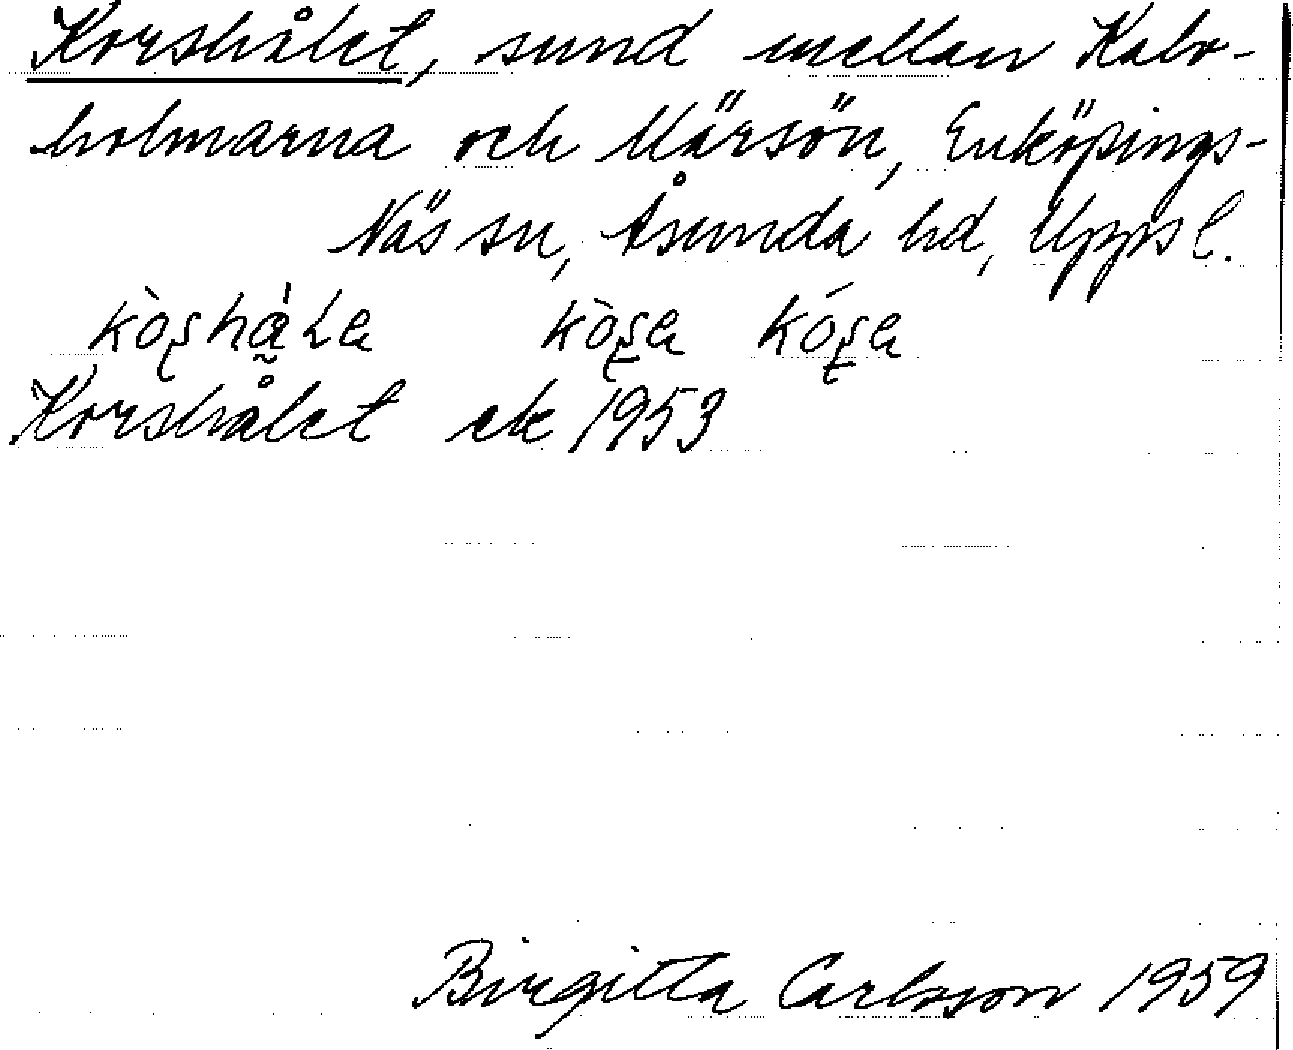 Korshålet, sund mellan Kalv-
holmarna och Märsön, Enköpings-
Näs sn, Åsunda hd, Uppsl.
Korshålet ek 1953
Birgitta Carlsson 1959